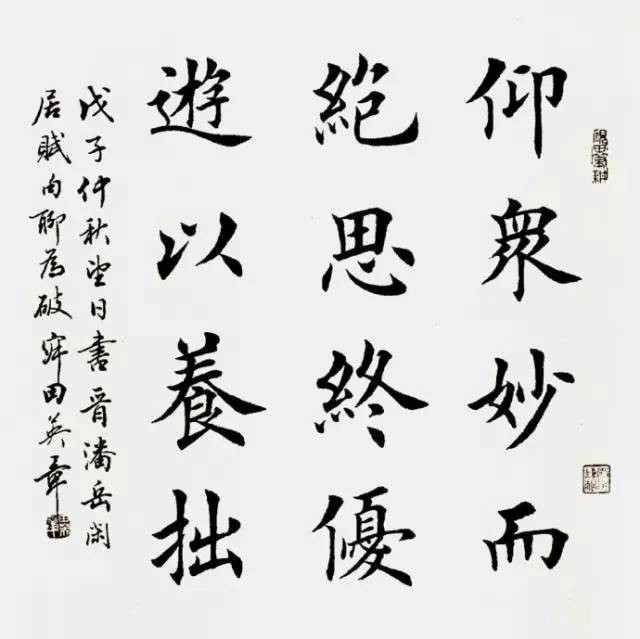 仰衆妙而
絕思終優
遊以養拙
戊子仲秋望日書晉潘岳閑
居賦句聊為破寂田英章